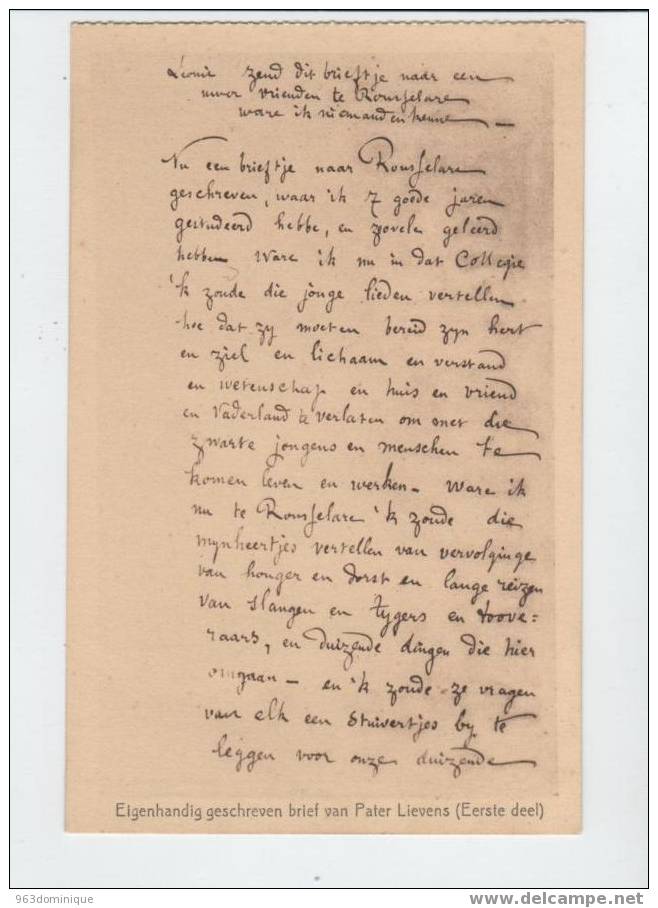 Leonie zend dit brieftje naar een
uwer vrienden te Rousselare
ware ik niemanden kenne —
Nu een brieftje naar Rousselare
geschreven, waar ik 7 goede jaren
gestudeerd hebbe, en zovelen geleerd
hebben Ware ik nu in dat Collegie
'k zoude die jonge lieden vertellen
hoe dat zy moeten bereid zyn hert
en ziel en lichaam en verstand
en wetenschap en huis en vriend
en Vaderland te verlaten om met die
zwarte jongens en menschen te
komen leven en werken – Ware ik
nu te Rousselare 'k zoude die
mynheertjes vertellen van vervolginge
van honger en dorst en lange reizen
van slangen en tygers en toove=
raars, en duizende dingen die hier
omgaan – en 'k zoude ze vragen
van elk een stuivertjes by te
leggen voor onze duizende
Eigenhandig geschreven brief van Pater Lievens (Eerste deel)
963dominique
delcampe.net